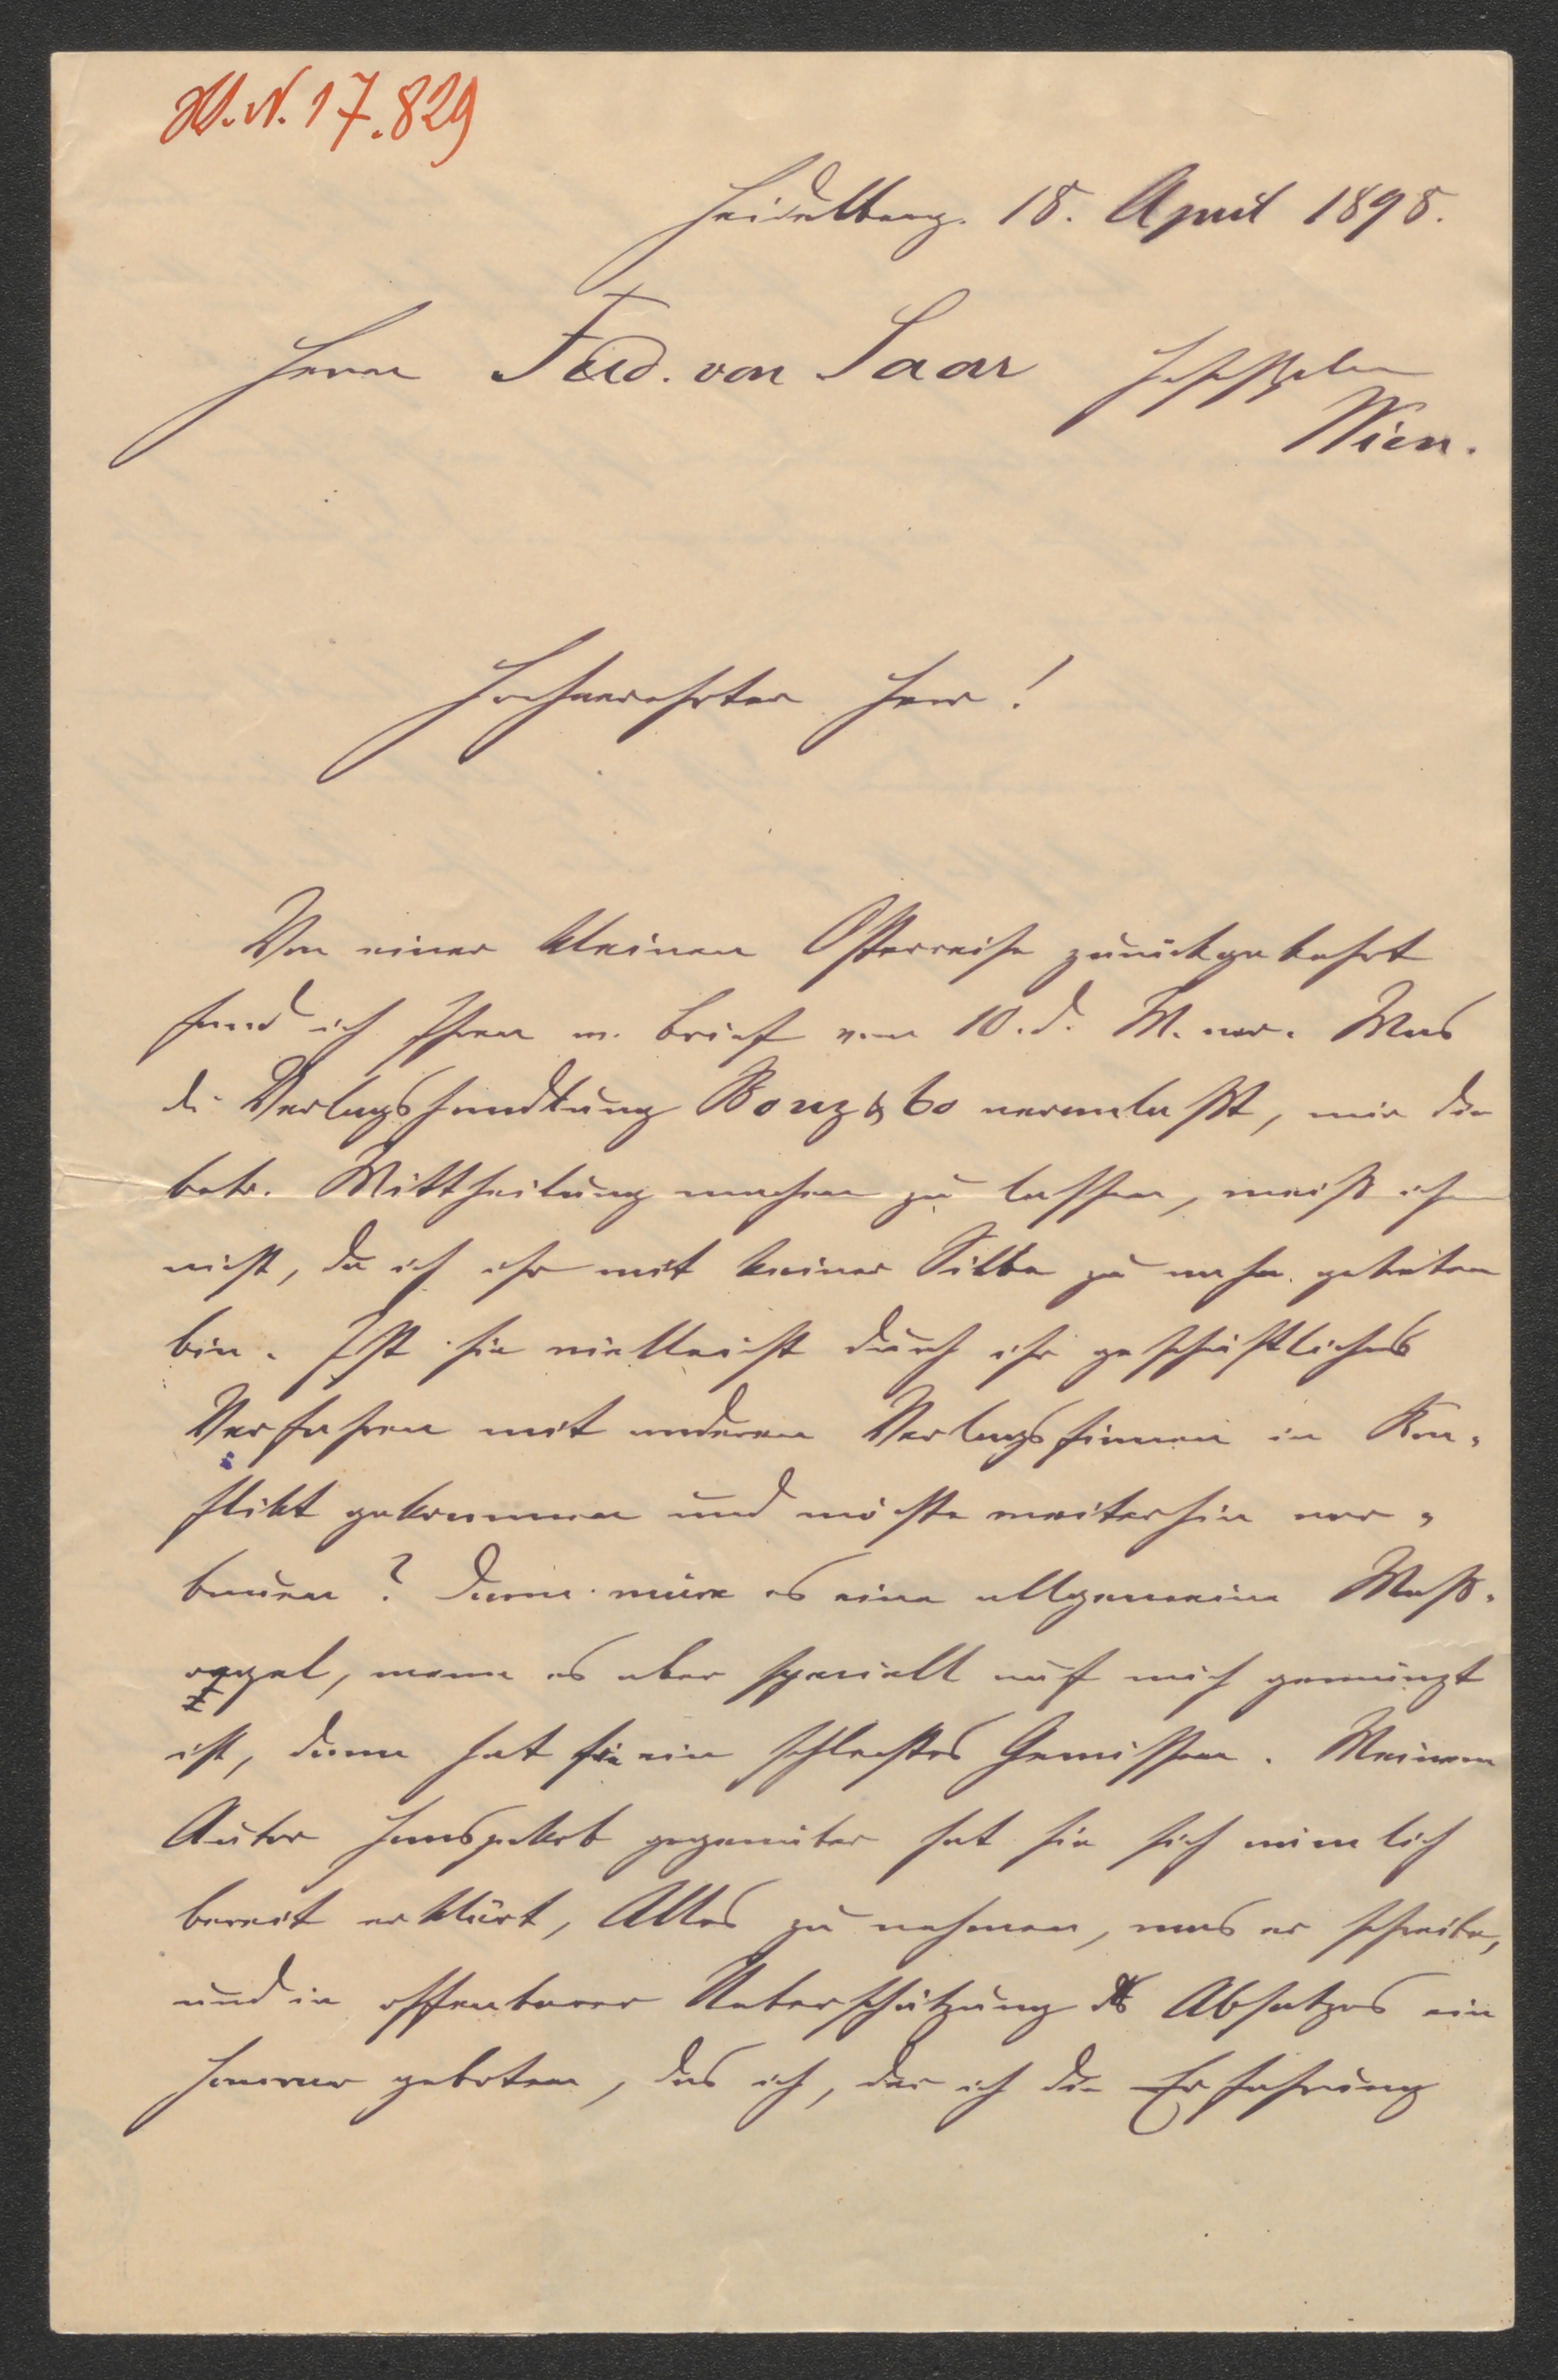 W.N. 17.829
Heidelberg. 18. April 1898.
Herrn Ferd. von Saar
Wien.
Hochverehrter Herr!
Von einer kleinen Osterreise zurückgekehrt
fand ich Ihren w. Brief vom 10. d. M. vor. Was
die Verlagshandlung Bonz & Co veranlaßt, mir die
betr. Mittheilung machen zu lassen, weiß ich
nicht, da ich ihr mit keiner Silbe zu nahe getreten
bin. Ist sie vielleicht durch ihr geschäftliches
Verfahren mit anderen Verlagsfirmen in Kon-
flikt gekommen und möchte weiterhin vor-
bauen? Dann wäre es eine allgemeine Maß-
regel, wenn es aber speciell auf mich gemünzt
ist, dann hat sie ein schlechtes Gewissen. Meinem
Autor Hansjakob gegenüber hat sie sich nämlich
bereit erklärt, Alles zu nehmen, was er schreibe,
und in offenbarer Ueberschätzung des Absatzes ein
Honorar geboten, das ich, der ich die Erfahrung